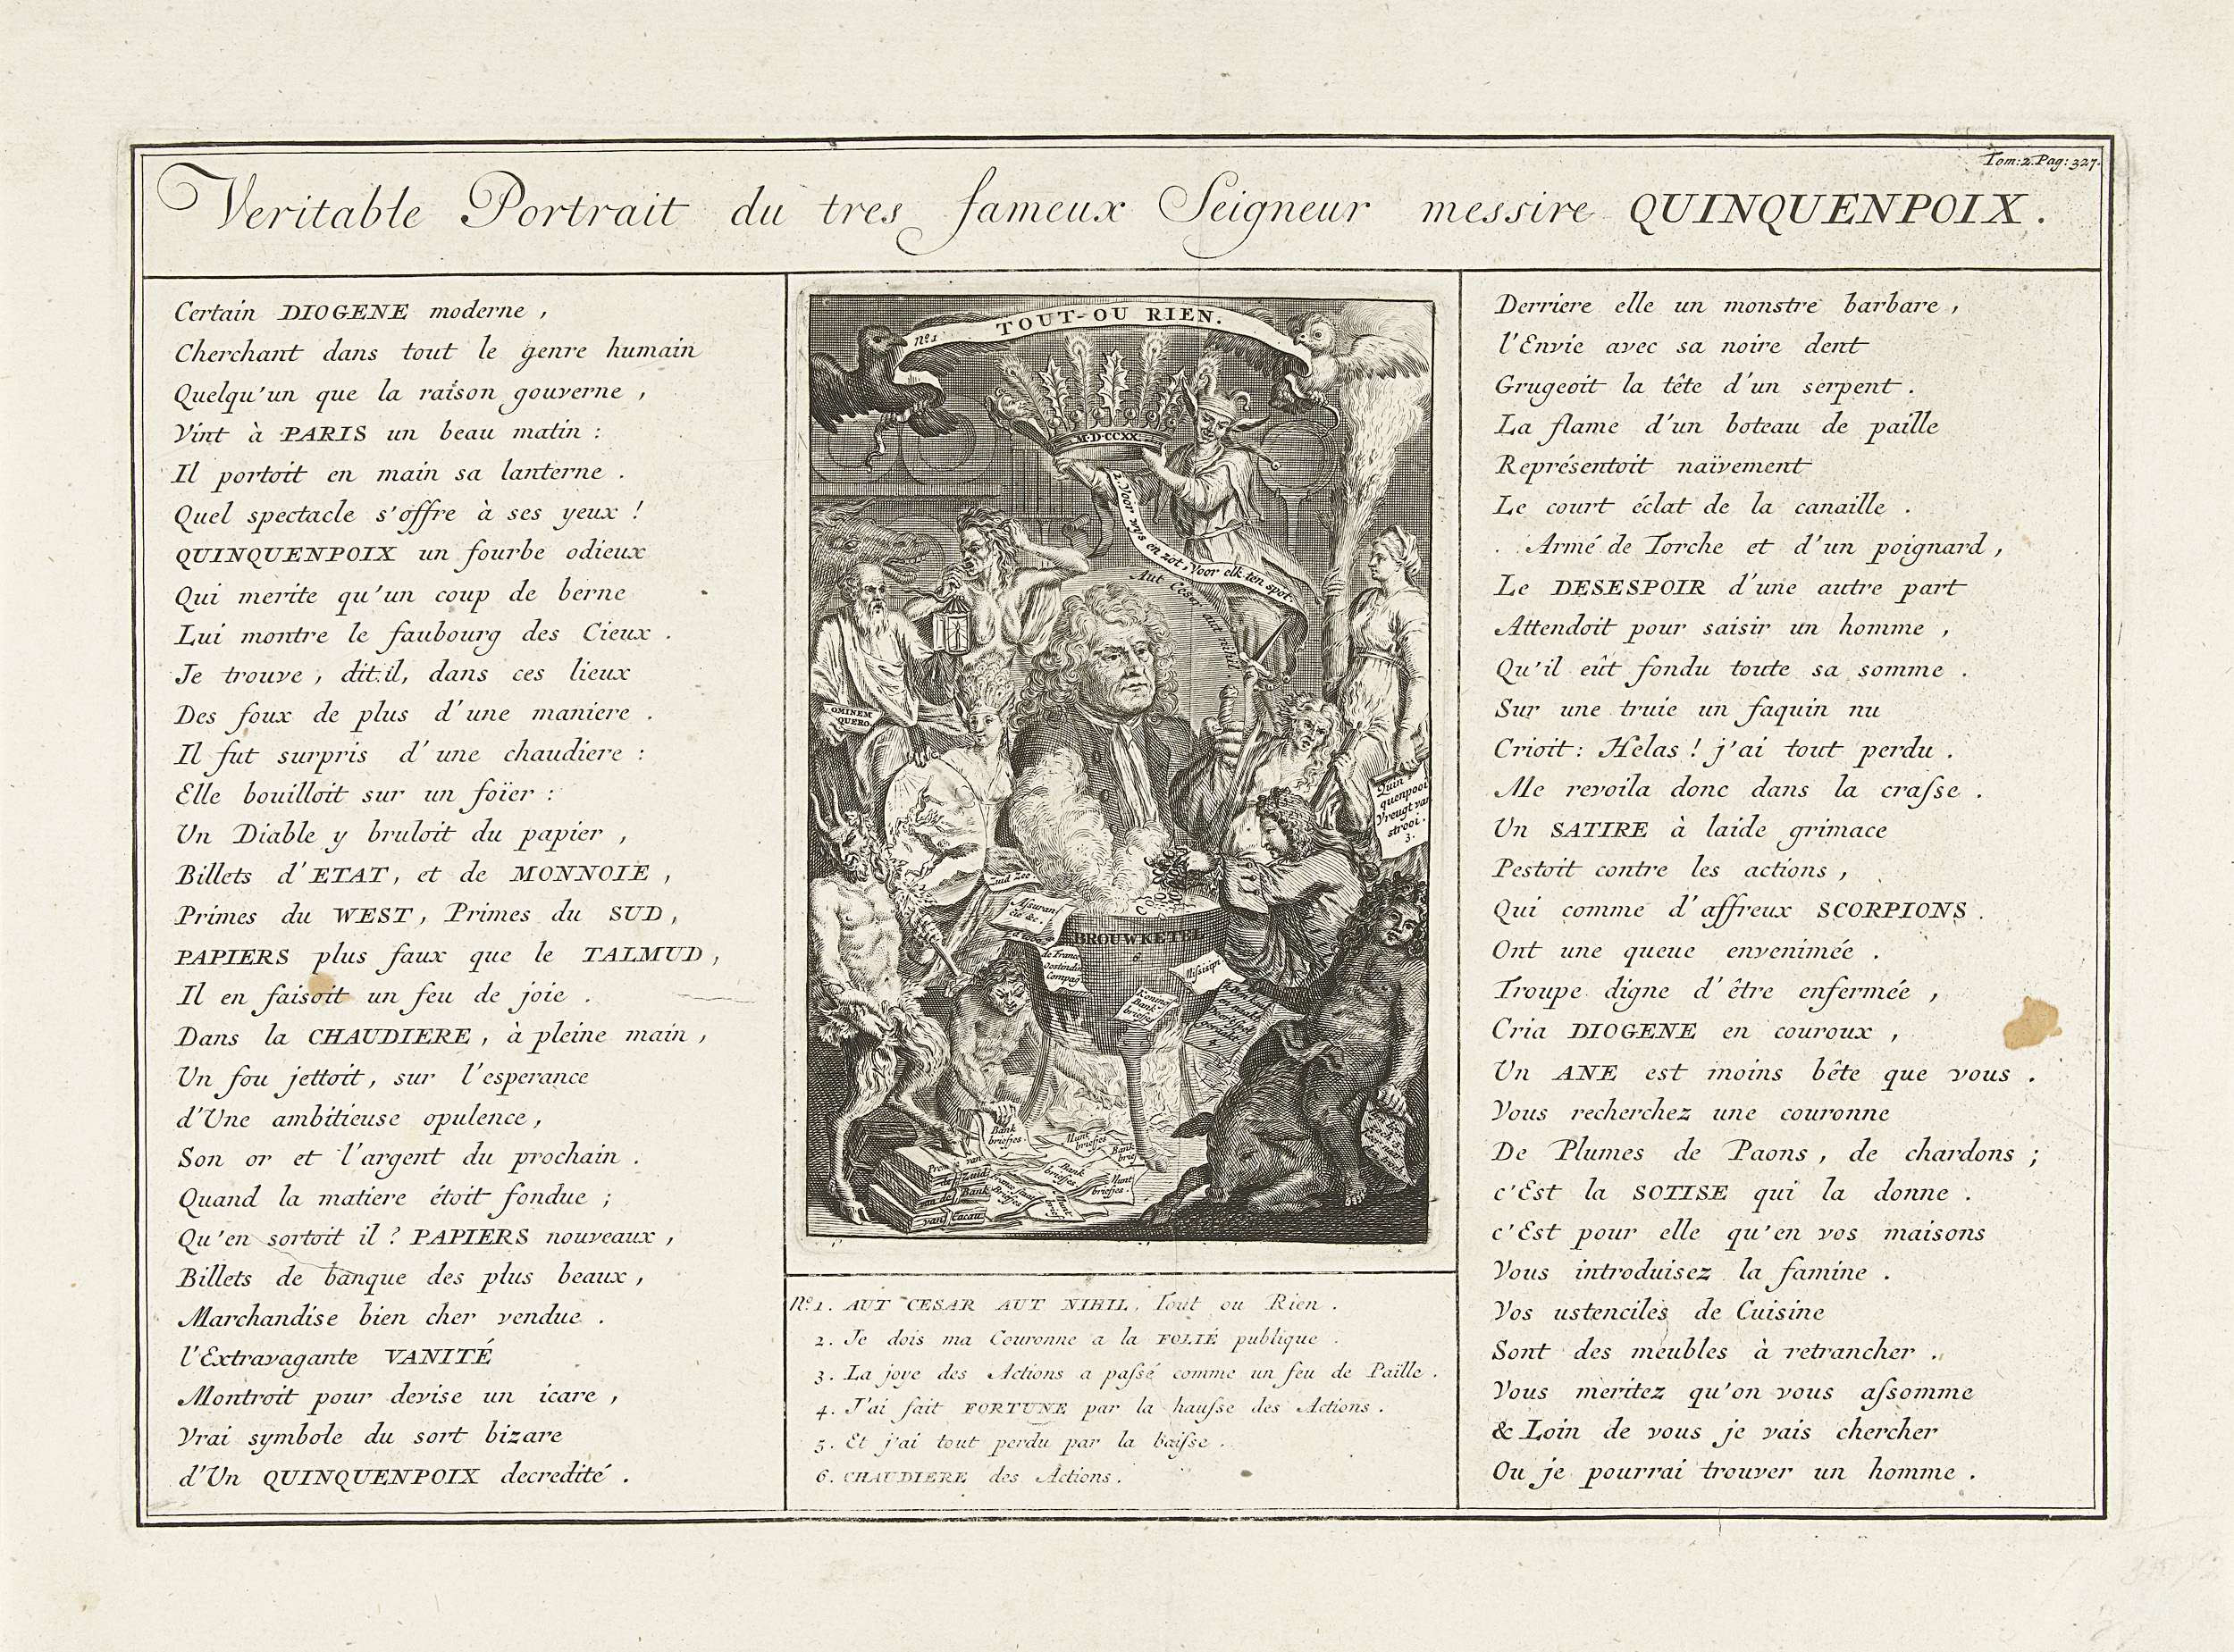 Tom: 2. Pag: 327.
Veritable Portrait du tres fameux Seigneur messire QUINQUENPOIX.
Certain DIOGENE moderne,
Cherchant dans tout le genre humain
Quelqu'un que la raison gouverne,
Vint à PARIS un beau matin:
Il portoit en main sa lanterne.
Quel spectacle s'offre à ses yeux!
QUINQUENPOIX un fourbe odieux
Qui merite qu'un coup de berne
Lui montre le faubourg des Cieux.
Je trouve, dit:il, dans ces lieux
Des foux de plus d'une maniere.
Il fut surpris d'une chaudiere:
Elle bouilloit sur un foïer:
Un Diable y bruloit du papier,
Billets d'ETAT, et de MONNOIE,
Primes du WEST, Primes du SUD,
PAPIERS plus faux que le TALMUD,
Il en faisoit un feu de joie.
Dans la CHAUDIERE, à pleine main,
Un fou jettoit, sur l'esperance
d'Une ambitieuse opulence,
Son or et l'argent du prochain.
Quand la matiere étoit fondue;
Qu'en sortoit il? PAPIERS nouveaux,
Billets de banque des plus beaux,
Marchandise bien cher vendue.
l'Extravagante VANITÉ
Montroit pour devise un icare,
Vrai symbole du sort bizare
d'Un QUINQUENPOIX decredité.
Nº1 TOUT-OU RIEN.
M·D·CCXX.
2. Voor wys en zot, Voor elk ten spot.
Aut Cesar aut nihil.
OMINEM
QUERO.
Quin
quenpooi
Vreugt van
strooi.
3.
Zuid Zee
Assuran
cie &c.
BROUWKETEL
6
de Franc
Oostindis
Compag
Missisipi
Bank
briefjes
Bank
briefjes.
Munt
briefjes
Bank
brief
Bank
briefjes
Munt
briefjes.
van Cacau
Nº1. AUT CESAR AUT NIHIL, Tout ou Rien.
2. Je dois ma Couronne a la FOLIÉ publique.
3. La joye des Actions a passé comme un feu de Païlle.
4. J'ai fait FORTUNE par la hausse des Actions.
5. Et j'ai tout perdu par la baisse.
6. CHAUDIERE des Actions.
Derriere elle un monstre barbare,
l'Envie avec sa noire dent
Grugeoit la tête d'un serpent.
La flame d'un boteau de paille
Représentoit naïvement
Le court éclat de la canaille.
Armé de Torche et d'un poignard,
Le DESESPOIR d'une autre part
Attendoit pour saisir un homme,
Qu'il eût fondu toute sa somme.
Sur une truie un faquin nu
Crioit: Helas! j'ai tout perdu.
Me revoila donc dans la crasse.
Un SATIRE à laide grimace
Pestoit contre les actions,
Qui comme d'affreux SCORPIONS.
Ont une queue envenimée.
Troupe digne d'être enfermée,
Cria DIOGENE en couroux,
Un ANE est moins bête que vous.
Vous recherchez une couronne
De Plumes de Paons, de chardons;
c'Est la SOTISE qui la donne.
c'Est pour elle qu'en vos maisons
Vous introduisez la famine.
Vos ustenciles de Cuisine
Sont des meubles à retrancher.
Vous meritez qu'on vous assomme
& Loin de vous je vais chercher
Ou je pourrai trouver un homme.